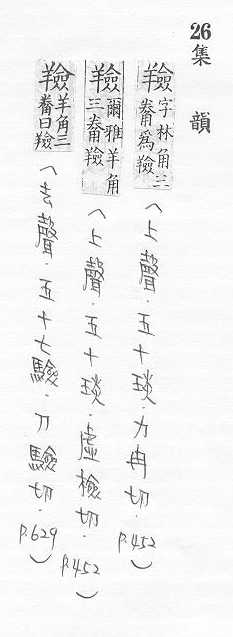 26 集韻
羷 字林角三觠爲羷 (上聲．五十琰．力冉切．P.452)
羷 爾雅羊角三觠羷 (上聲．五十琰．虛檢切．P.452)
羷 羊角二觠曰羷 (去聲．五十七驗．力驗切．P.629)